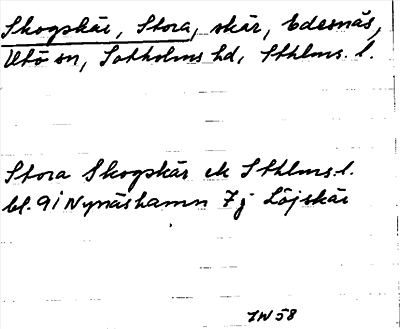 Skogskär, Stora, skär, Edesnäs,
Utö sn, Sotholms hd, Sthlms. l.
Stora Skogskär ek Sthlms. l.
bl. 9I Nynäshamn 7j Löjskär
IW 58